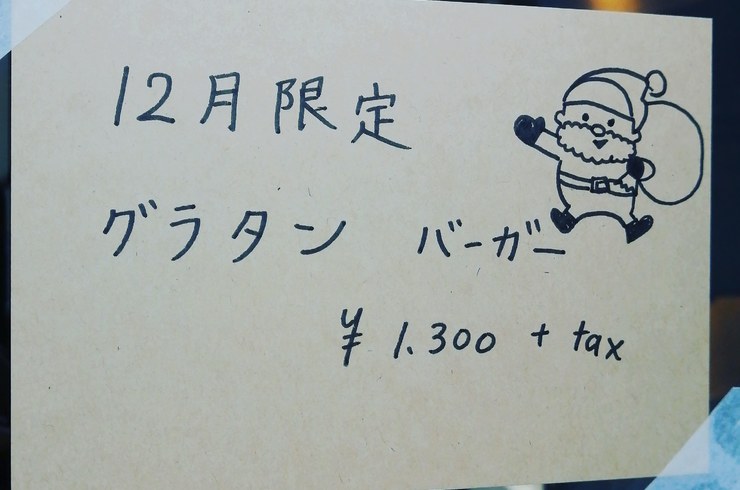 12月限定
グラタン バーガー
¥ 1.300 + tax